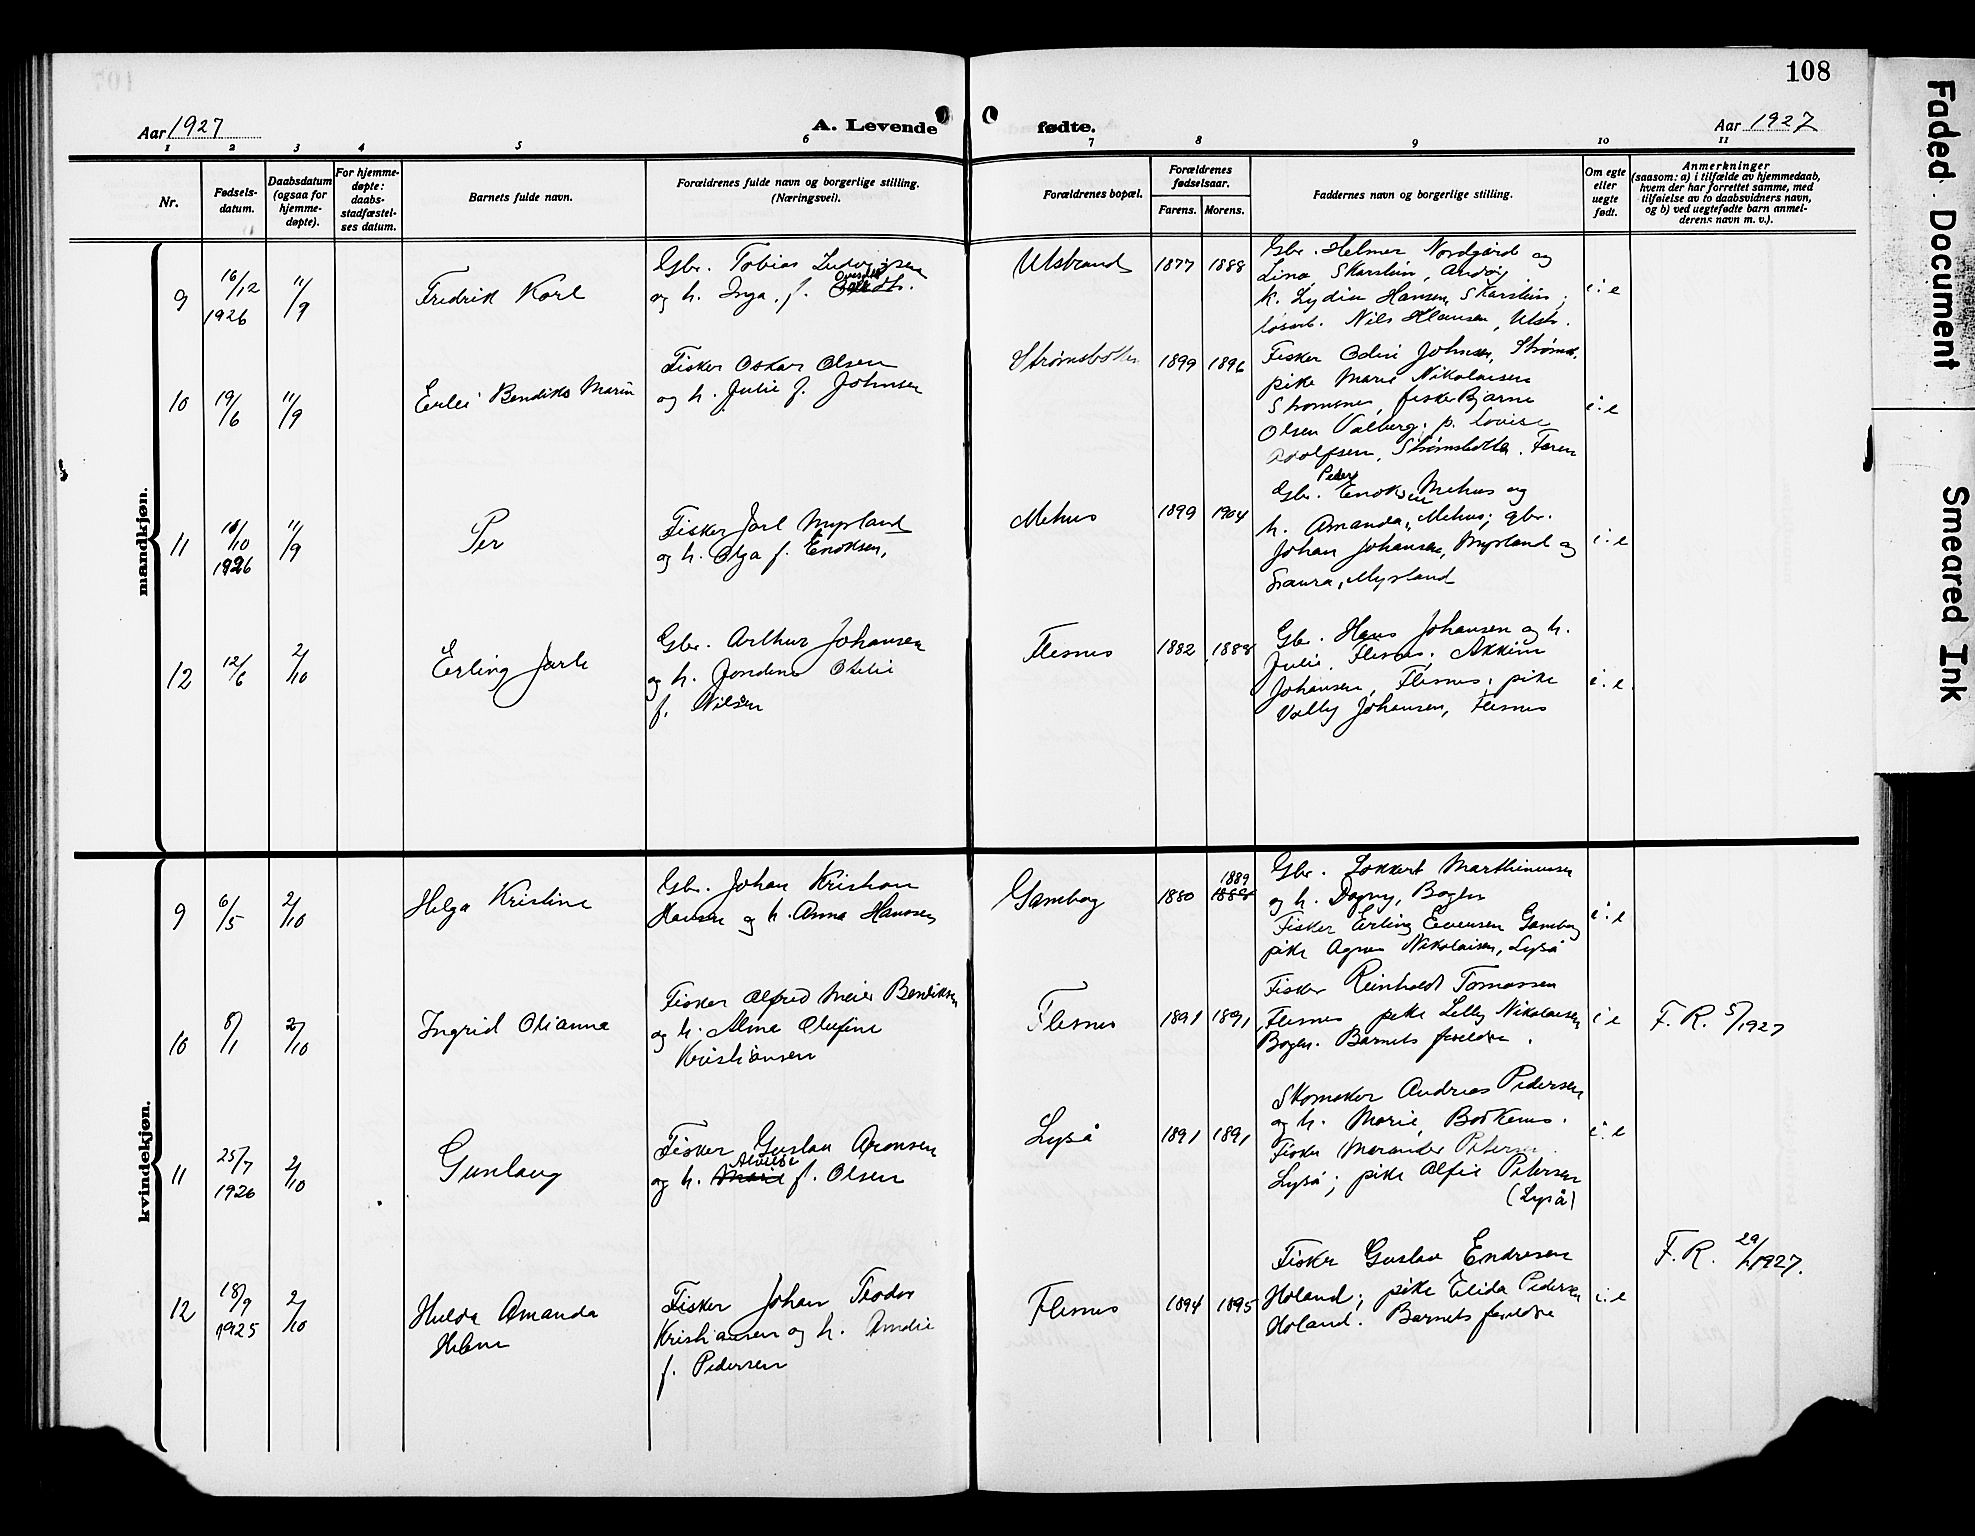 108
Aar 1927
A. Levende
fødte.
Aar 1927
1 2 3 4 5 6 7 8 9 10 11
Nr.
Fødsels-
datum.
Daabsdatum
(ogsaa for
hjemme-
døpte).
For hjemme-
døpte:
daabs-
stadfæstel-
ses datum.
Barnets fulde navn.
Forældrenes fulde navn og borgerlige stilling.
(Næringsvei).
Forældrenes bopæl.
Forældrenes
fødselsaar.
Farens. Morens.
Faddernes navn og borgerlige stilling.
Om egte
eller
uegte
født.
Anmerkninger
(saasom: a) i tilfælde av hjemmedaab,
hvem der har forrettet samme, med
tilføielse av to daabsvidners navn,
og b) ved uegtefødte barn anmel-
derens navn m. v.).
mandkjøn.
9
16/12
1926
11/9
Fredrik Karl
Gbr. Tobias Ludvigsen
og h. Inga f.
Utstrand
1877 1888
Gbr. Helmer Nordgård og
Lina Skarstein, Andøy
k. Lydia Hansen, Skarstein;
løsarb. Nils Hansen, Utstr.
i: e
10
19/6
11/9
Bendiks Marin
Fisker Oskar Olsen
og h. Julie f. Johnsen
Strømsbotten
1899 1896
Fisker Odin Johnsen, Strømsb.
pike Marie Nikolaisen
Strømsnes, fisker Bjarne
Olsen Valberg; p. Lovise
Adolfsen, Strømsbotten. Faren
i: e
11
10
1926
11/9
Per
Fisker Jarl Myrland
og h. Olga f. Enoksen,
Mehus
1899 1904
Peder
Gbr. Enoksen Mehus og
h. Amanda, Mehus; gbr.
Johan Johansen, Myrland og
Laura, Myrland
i: e
12
12/6
2/10
Erling Jarle
Gbr. Arthur Johansen
og h. Jondine Otelie
f. Nilsen
Flesnes
1882 1888
Gbr. Hans Johansen og h.
Julie, Flesnes; Akkim
Johansen, Flesnes; pike
Vally Johansen, Flesnes
i: e.
kvindekjøn.
9
6/5
2/10
Helga Kristine
Gbr. Johan Kristian
Hansen og h. Anna Hansen
Gambog
1889
1880 1888
Gbr. Lokkert Marthinussen
og h. Dagny, Bogen
Fisker Erling Evensen Gambog
pike Agnes Nikolaisen, Lyså
i: e
10
8/1
2/10
Ingrid Olianna
Fisker Alfred Meier Bendiksen
og h. Alma Olufine
Kristiansen
Flesnes
1891 1891
Fisker Reinholdt Tomassen
Flesnes pike Lelly Nikolaisen
Bogen. Barnets foreldre.
i: e
F. R. 5/1927
11
25/7
1926
2/10
Gunlaug
Fisker Gustav Aronsen
og h. Marie f. Olsen
Lyså
1891 1891
Skomaker Andreas Pedersen
og h. Marie, Botkenes.
Fisker Meander Petersen
Lyså; pike Alfie Petersen
(Lyså)
i: e
12
18/9
1925
2/10
Hulda Amanda
Helene
Fisker Johan Teodor
Kristiansen og h. Amalie
f. Pedersen
Flesnes
1894 1895
Fisker Gustav Endresen
Holand; pike Elida Pedersen
Holand. Barnets foreldre
i: e
F. R. 29/1 1927.
Faded Document
Smeared Ink